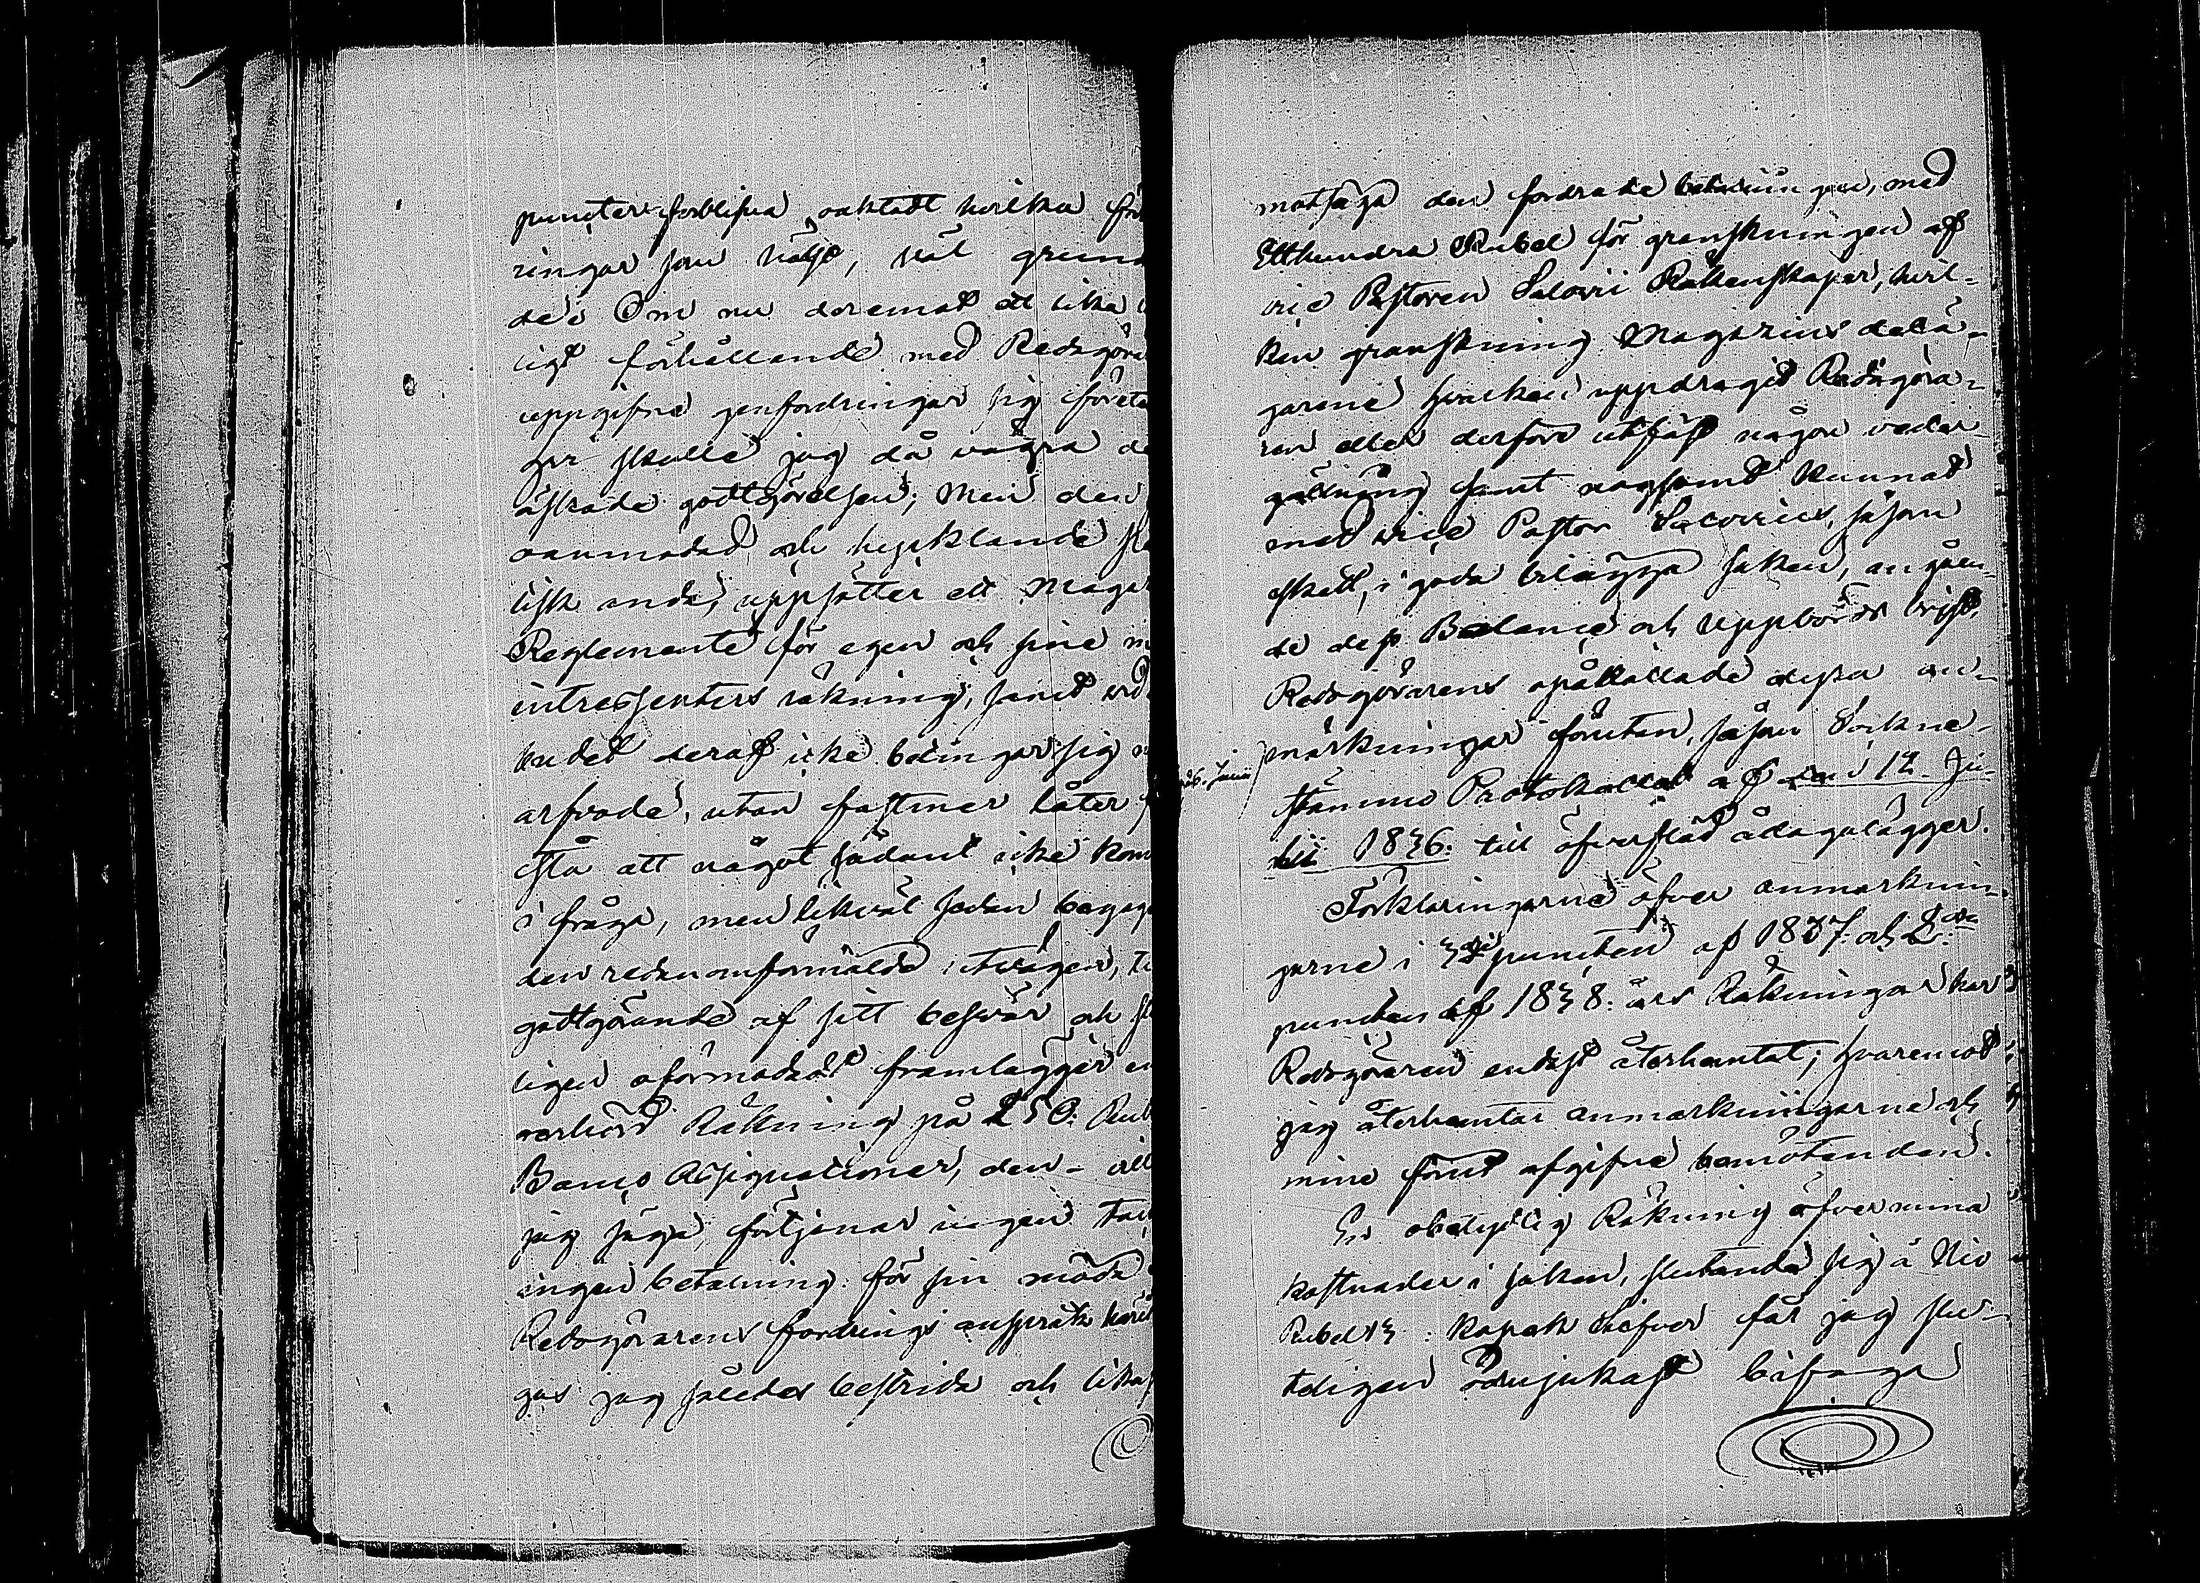 puncter forblifva oaktadt hvilka för
ringar som helst, väl grun
de. Om nu deremot ett lika
ligt förhållande med Redogöra
uppgifne genfordringar sig förete
ger skulle jag då vägra de
äskade godtgörelsen; Men den
oanmodad och hycklande
tisk anda, uppsätter ett Maga
Reglemente för egen och sine m
intressenters räkning, samt vid
det deraf icke betingar sig
arfvode, utan fastmer låter
stå att något sådant icke kom
i fråga, men likväl sedan begag
den redan omförmälde utvägen, ti
godtgörande af sitt besvär och
ligen oförmodadt framlägger en
oerhörd Räkning på 250: Rub
Banco Assignationer, den - vill
jag säga, förtjenar ingen tac
ingen betalning för sin möda
Redogörarens fordrings anspråk
gas jag således bestrida och lika
motsäga den fordrade betalningen, med
Etthundra Rubel för granskningen af
vice Pastoren Salovii Räkenskaper, hvil-
ken granskning Magazins delä-
garene hvarken uppdragit Redogöra-
ren eller derföre utfäst någon veder-
gällning samt nogsamt kunnat
med vice Pastor Salovius, såsom
skett, i goda bilägga saken, angåen-
de dess Balance och Uppbörds brist,
Redogörarens opåkallade dessa an-
märkningar förutan, såsom Sockne-
stämmo Protokollet af den 12. Ju-
26. Junii
lii 1836. till öfverflöd ådagalägger.
Förklaringarne öfver anmärknin-
garne i 3dje puncten af 1837: och 2:dra
puncten af 1838: års Räkningar har
Redogöraren endast återhemtat; hvaremot
jag återhemtar anmärkningarne och
mine förut afgifne bemötanden.
En obetydlig Räkning öfver mina
kostnader i saken, slutande sig å Nio
Rubel 13: kopek Silfver får jag slu-
teligen ödmjukast bifoga